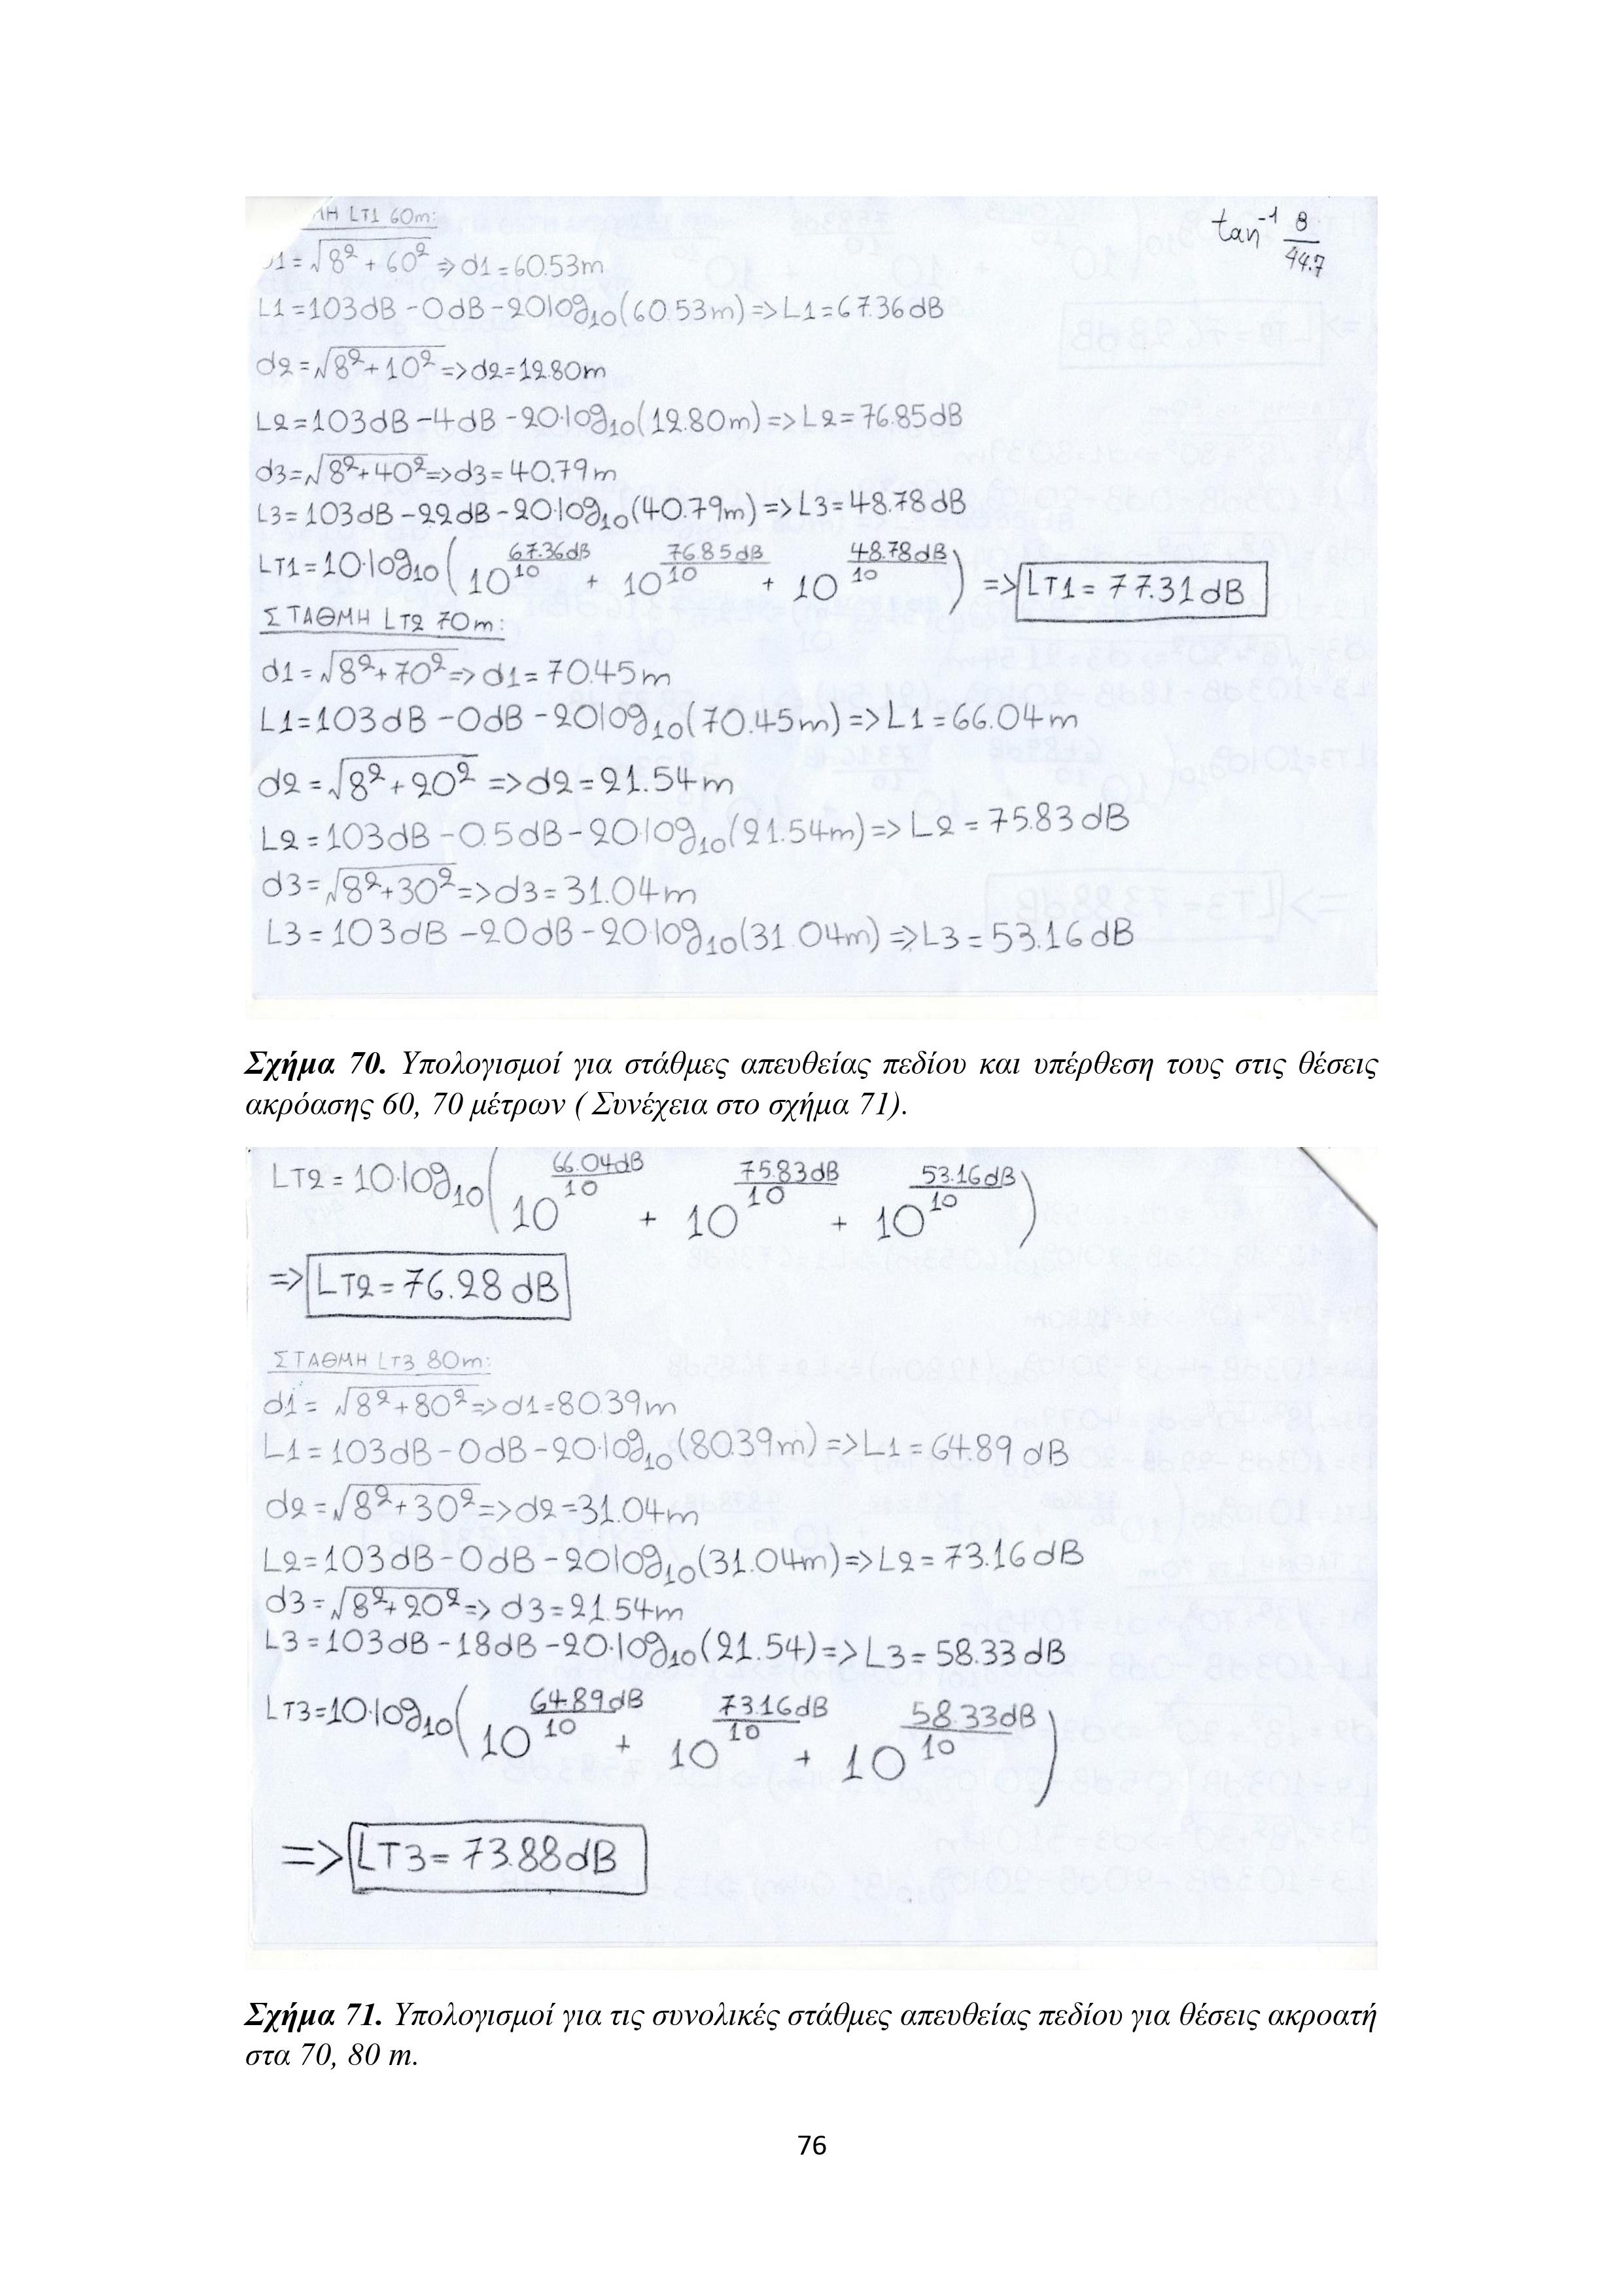 ΜΗ LT1 60m:
d1 = √8² + 60² => d1 = 60.53m
L1 = 103dB - 0dB - 20log₁₀(60.53m) => L1 = 67.36dB
d2 = √8² + 10² => d2 = 12.80m
L2 = 103dB - 4dB - 20·log₁₀(12.80m) => L2 = 76.85dB
d3 = √8² + 40² => d3 = 40.79m
L3 = 103dB - 22dB - 20·log₁₀(40.79m) => L3 = 48.78dB
LT1 = 10·log₁₀(10^(67.36dB/10) + 10^(76.85dB/10) + 10^(48.78dB/10)) => LT1 = 77.31dB
tan⁻¹ 8/44.7
ΣΤΑΘΜΗ LT2 70m:
d1 = √8² + 70² => d1 = 70.45m
L1 = 103dB - 0dB - 20log₁₀(70.45m) => L1 = 66.04m
d2 = √8² + 20² => d2 = 21.54m
L2 = 103dB - 0.5dB - 20·log₁₀(21.54m) => L2 = 75.83dB
d3 = √8² + 30² => d3 = 31.04m
L3 = 103dB - 20dB - 20·log₁₀(31.04m) => L3 = 53.16dB
Σχήμα 70. Υπολογισμοί για στάθμες απευθείας πεδίου και υπέρθεση τους στις θέσεις
ακρόασης 60, 70 μέτρων ( Συνέχεια στο σχήμα 71).
LT2 = 10·log₁₀(10^(66.04dB/10) + 10^(75.83dB/10) + 10^(53.16dB/10))
=> LT2 = 76.28dB
ΣΤΑΘΜΗ LT3 80m:
d1 = √8² + 80² => d1 = 80.39m
L1 = 103dB - 0dB - 20·log₁₀(80.39m) => L1 = 64.89dB
d2 = √8² + 30² => d2 = 31.04m
L2 = 103dB - 0dB - 20log₁₀(31.04m) => L2 = 73.16dB
d3 = √8² + 20² => d3 = 21.54m
L3 = 103dB - 18dB - 20·log₁₀(21.54) => L3 = 58.33dB
LT3 = 10·log₁₀(10^(64.89dB/10) + 10^(73.16dB/10) + 10^(58.33dB/10))
=> LT3 = 73.88dB
Σχήμα 71. Υπολογισμοί για τις συνολικές στάθμες απευθείας πεδίου για θέσεις ακροατή
στα 70, 80 m.
76